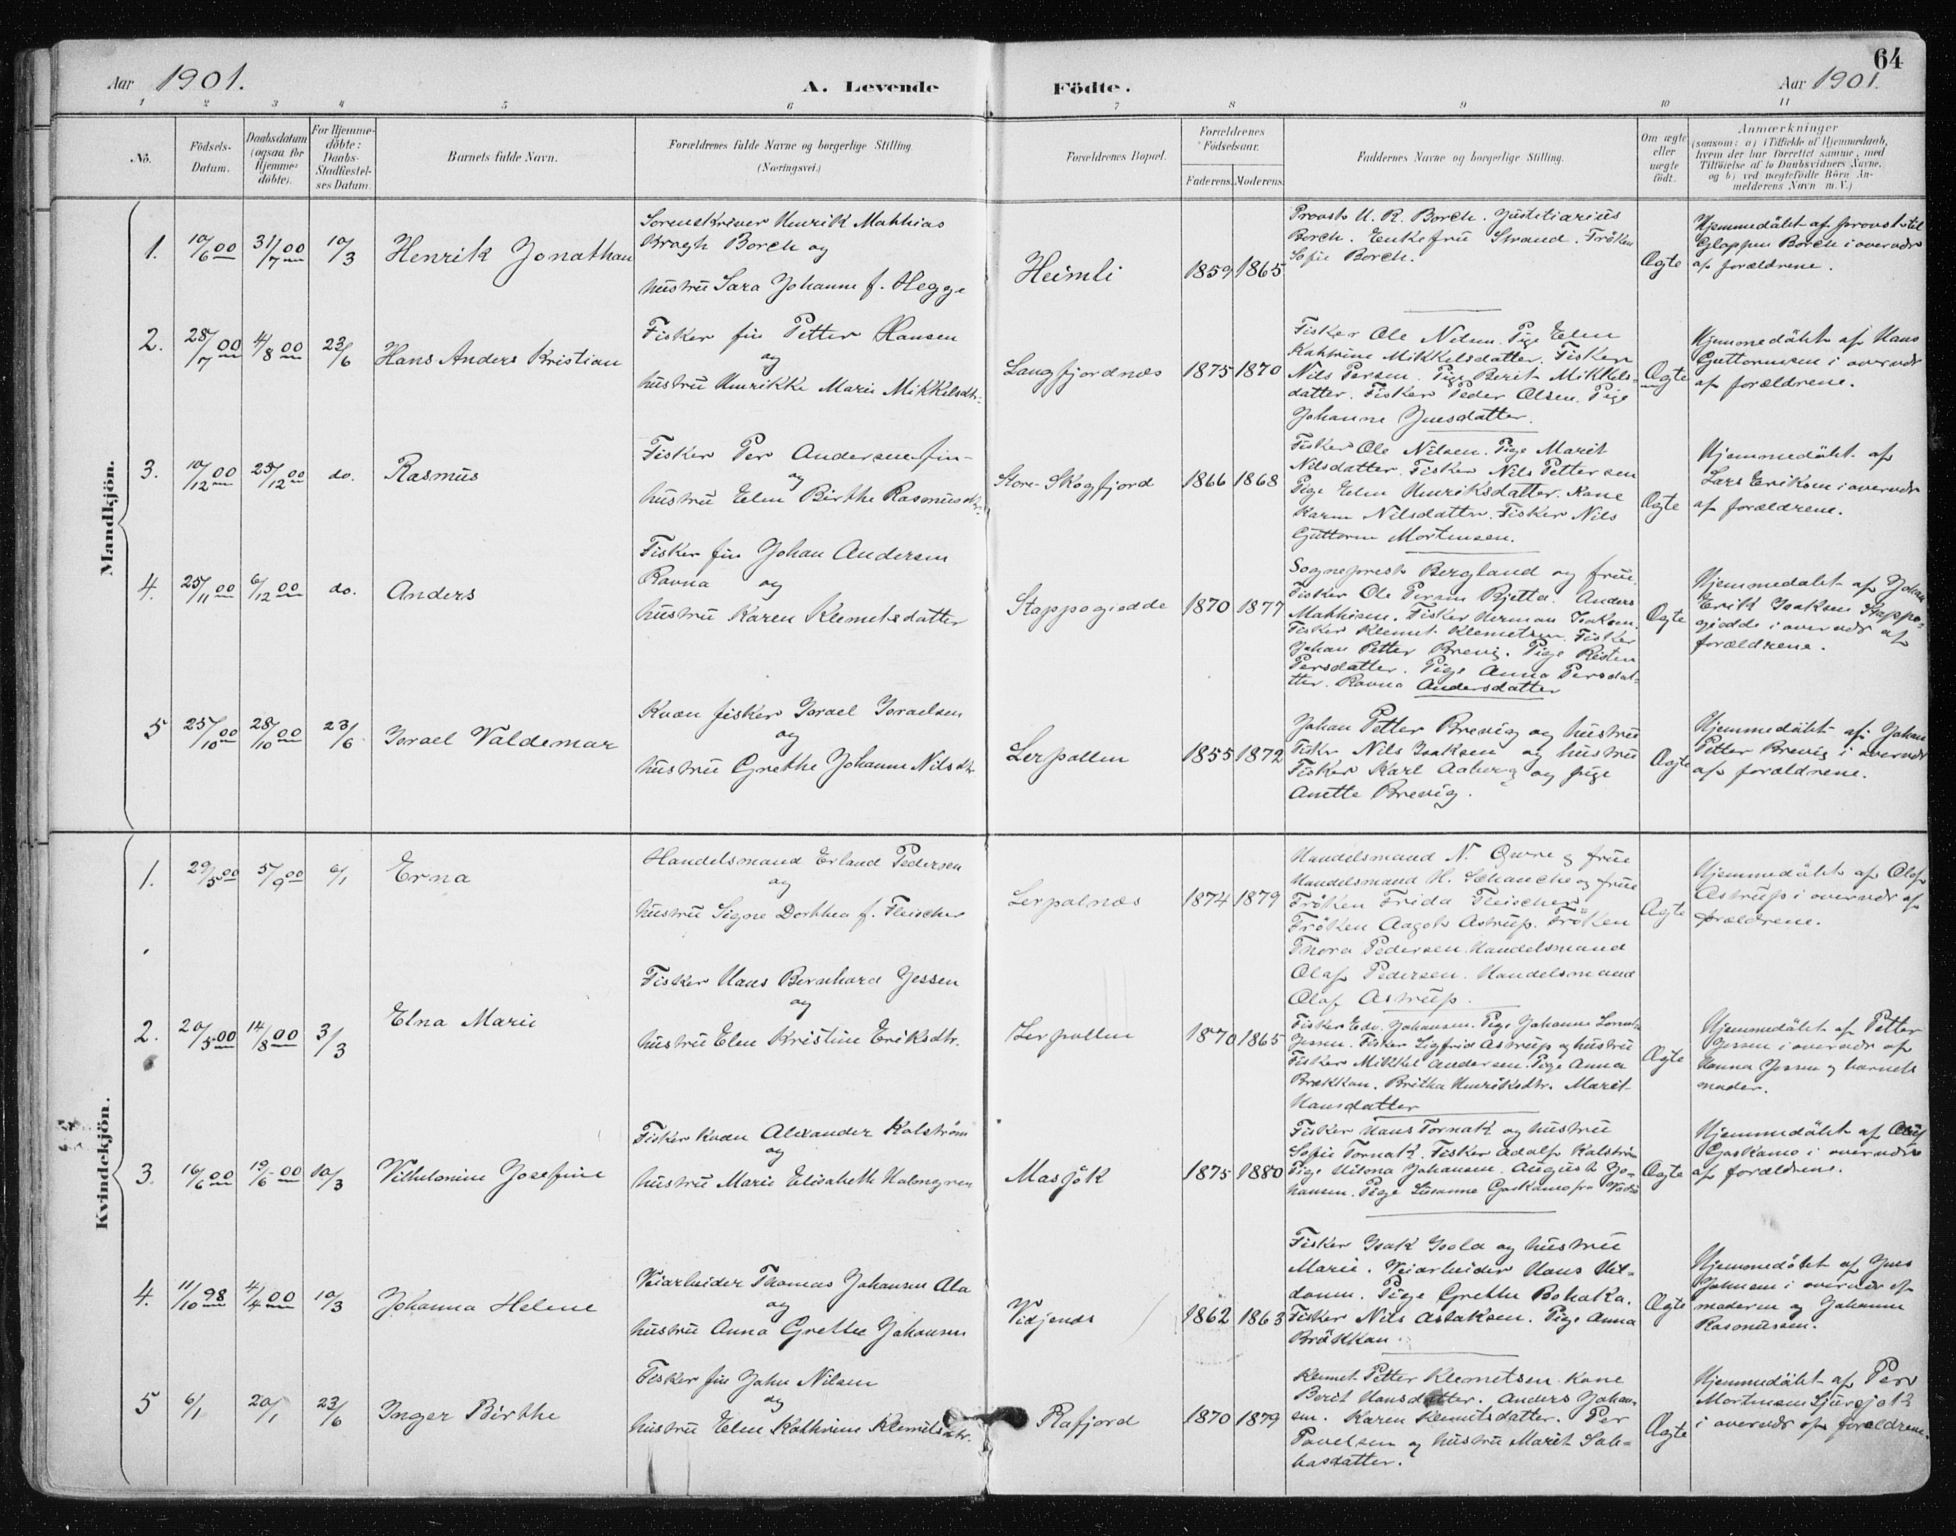 64
Aar 1901.
A. Levende Födte.
Aar 1901.
1 2 3 4 5 6 7 8 9 10 11
No.
Födsels-
Datum.
Daabsdatum
(ogsaa for
Hjemme-
döbte).
For Hjemme-
döbte:
Daabs-
Stadfæstel-
ses Datum.
Barnets fulde Navn.
Forældrenes fulde Navne og borgerlige Stilling
(Næringsvei.)
Forældrenes Bopæl.
Forældrenes
Födselsaar.
Faderens. Moderens.
Faddernes Navne og borgerlige Stilling.
Om ægte
eller
uægte
födt.
Anmærkninger
(saasom: a) i Tilfælde af Hjemmedaab,
hvem der har forrettet samme, med
Tilföielse af to Daabsvidners Navne,
og b) ved uægtefödte Börn An-
melderens Navn m.V.)
Mandkjön.
1.
10/6 00
31/7 00
10/3
Henrik Jonathan
Sorenskriver Henrik Mathias
Bragh Borch og
hustru Sara Johanne f. Hegge
Heimli
1859 1865
Provst H. R. Borch. Justitiarius
Borch. Enkefru Strand. Fröken
Sofie Borch.
Ægte
Hjemmedöbt af provst til
Gloppen Borch i overvær
af forældrene.
2.
28/7 00
4/8 00
23/6
Hans Anders Kristian
Fisker fin Petter Hansen
og
hustru Henrikke Marie Mikkelsdtr.
Langfjordnæs
1875 1870
Fisker Ole Nilsen. Pige Elen
Kathrine Mikkelsdatter. Fisker
Nils Persen. Pige Berit Mikkels-
datter. Fisker Peder Olsen. Pige
Johanne Jensdatter.
Ægte
Hjemmedöbt af Hans
Guttormsen i overvær
af forældrene.
3.
10/12 00
23/12 00
do.
Rasmus
Fisker Per Andersen fin
og
hustru Elen Birthe Rasmusdtr.
Store-Skogfjord
1866 1868
Fisker Ole Nilsen. Pige Marit
Nilsdatter. Fisker Nils Pettersen
Pige Elen Henriksdatter. Kone
Karen Nilsdatter. Fisker Nils
Guttorm Mortensen.
Ægte
Hjemmedöbt af
Lars Eriksen i overvær
af forældrene.
4.
25/11 00
6/12 00
do.
Anders
Fisker fin Johan Andersen
Ravna og
hustru Karen Klemetsdatter
Stappogiedde
1870 1877
Sogneprest Bergland og frue.
Fisker Ole Persen Bjetta. Anders
Mathisen. Fisker Herman Isaksen.
Fisker Klemet Klemetsen. Fisker
Johan Petter Brevig. Pige Risten
Persdatter. Pige Anna Persdat-
ter. Ravna Andersdatter
Ægte
Hjemmedöbt af Johan
Erik Isaksen Stappo-
giedde i overvær af
forældrene.
5
25/10 00
28/10 00
23/6
Israel Valdemar
Kvæn fisker Israel Israelsen
og
hustru Grethe Johanne Nilsdtr.
Lerpollen
1855 1872
Johan Petter Brevig og hustru
Fisker Nils Isaksen og hustru
Fisker Karl Aaberg og pige
Anette Brevig.
Ægte
Hjemmedöbt af Johan
Petter Brevig i overvær
af forældrene.
Kvindekjön.
1.
29/5 00
5/9 00
6/1
Erna
Handelsmand Erland Pedersen
og
hustru Signe Dorthea f. Fleischer
Lerpolnæs
1874 1879
Handelsmand N. Qvre og frue
Handelsmand H. Schanche og frue
Fröken Frida Fleischer.
Fröken Aagot Astrup. Fröken
Thora Pedersen. Handelsmand
Olaf Pedersen. Handelsmand
Olaf Astrup.
Ægte
Hjemmedöbt af Olaf
Astrup i overvær af
forældrene.
2.
20/5 00
14/8 00
3/3
Elna Marie
Fisker Hans Bernhard Jessen
og
hustru Elen Kristine Eriksdtr.
Lerpollen
1870 1865
Fisker Edv. Johansen. Pige Johanne
Jessen. Fisker Sigfrid Astrup og hustru
Fisker Mikkel Andersen. Pige Anna
Brækkan. Britha Henriksdtr. Marit
Hansdatter
Ægte
Hjemmedöbt af Petter
Jessen i overvær af
Hanna Jessen og barnets
moder.
3.
16/6 00
19/6 00
10/3
Vilhelmine Josefine
Fisker Kvæn Alexander Kalström
og
hustru Marie Elisabeth Halongren
Masjok
1875 1880
Fisker Hans Tornak og hustru
Sofie Tornak. Fisker Adolf Kalström
Pige Hilona Johansen. August Jo-
hansen. Pige Susanne Gjaskamo fra Vadsö
Ægte
Hjemmedöbt af Oluf
Gjaskamo i overvær
af forældrene.
4.
11/10 98
4/4 00
10/3
Johanna Helene
Veiarbeider Thomas Johansen Ala
og
hustru Anna Grethe Johansen
Vidjenæs
1862 1863
Fisker Isak Isola og hustru
Marie. Veiarbeider Hans Hil-
donen. Pige Grethe Bohaka.
Fisker Nils Aslaksen. Pige Anna
Brækkan.
Ægte
Hjemmedöbt af Jens
Johnsen i overvær af
moderen og Johanne
Rasmussen.
5
6/1
20/1
23/6
Inger Birthe
Fisker fin John Nilsen
og
hustru Elen Kathrine Klemetsdtr.
Rafjord
1870 1879
Klemet Petter Klemetsen. Kone
Berit Hansdatter. Anders Johan-
sen. Karen Klemetsdatter. Per
Povelsen og hustru Marit Sab-
basdatter.
Ægte
Hjemmedöbt af Per
Mortensen
i overvær af forældrene.